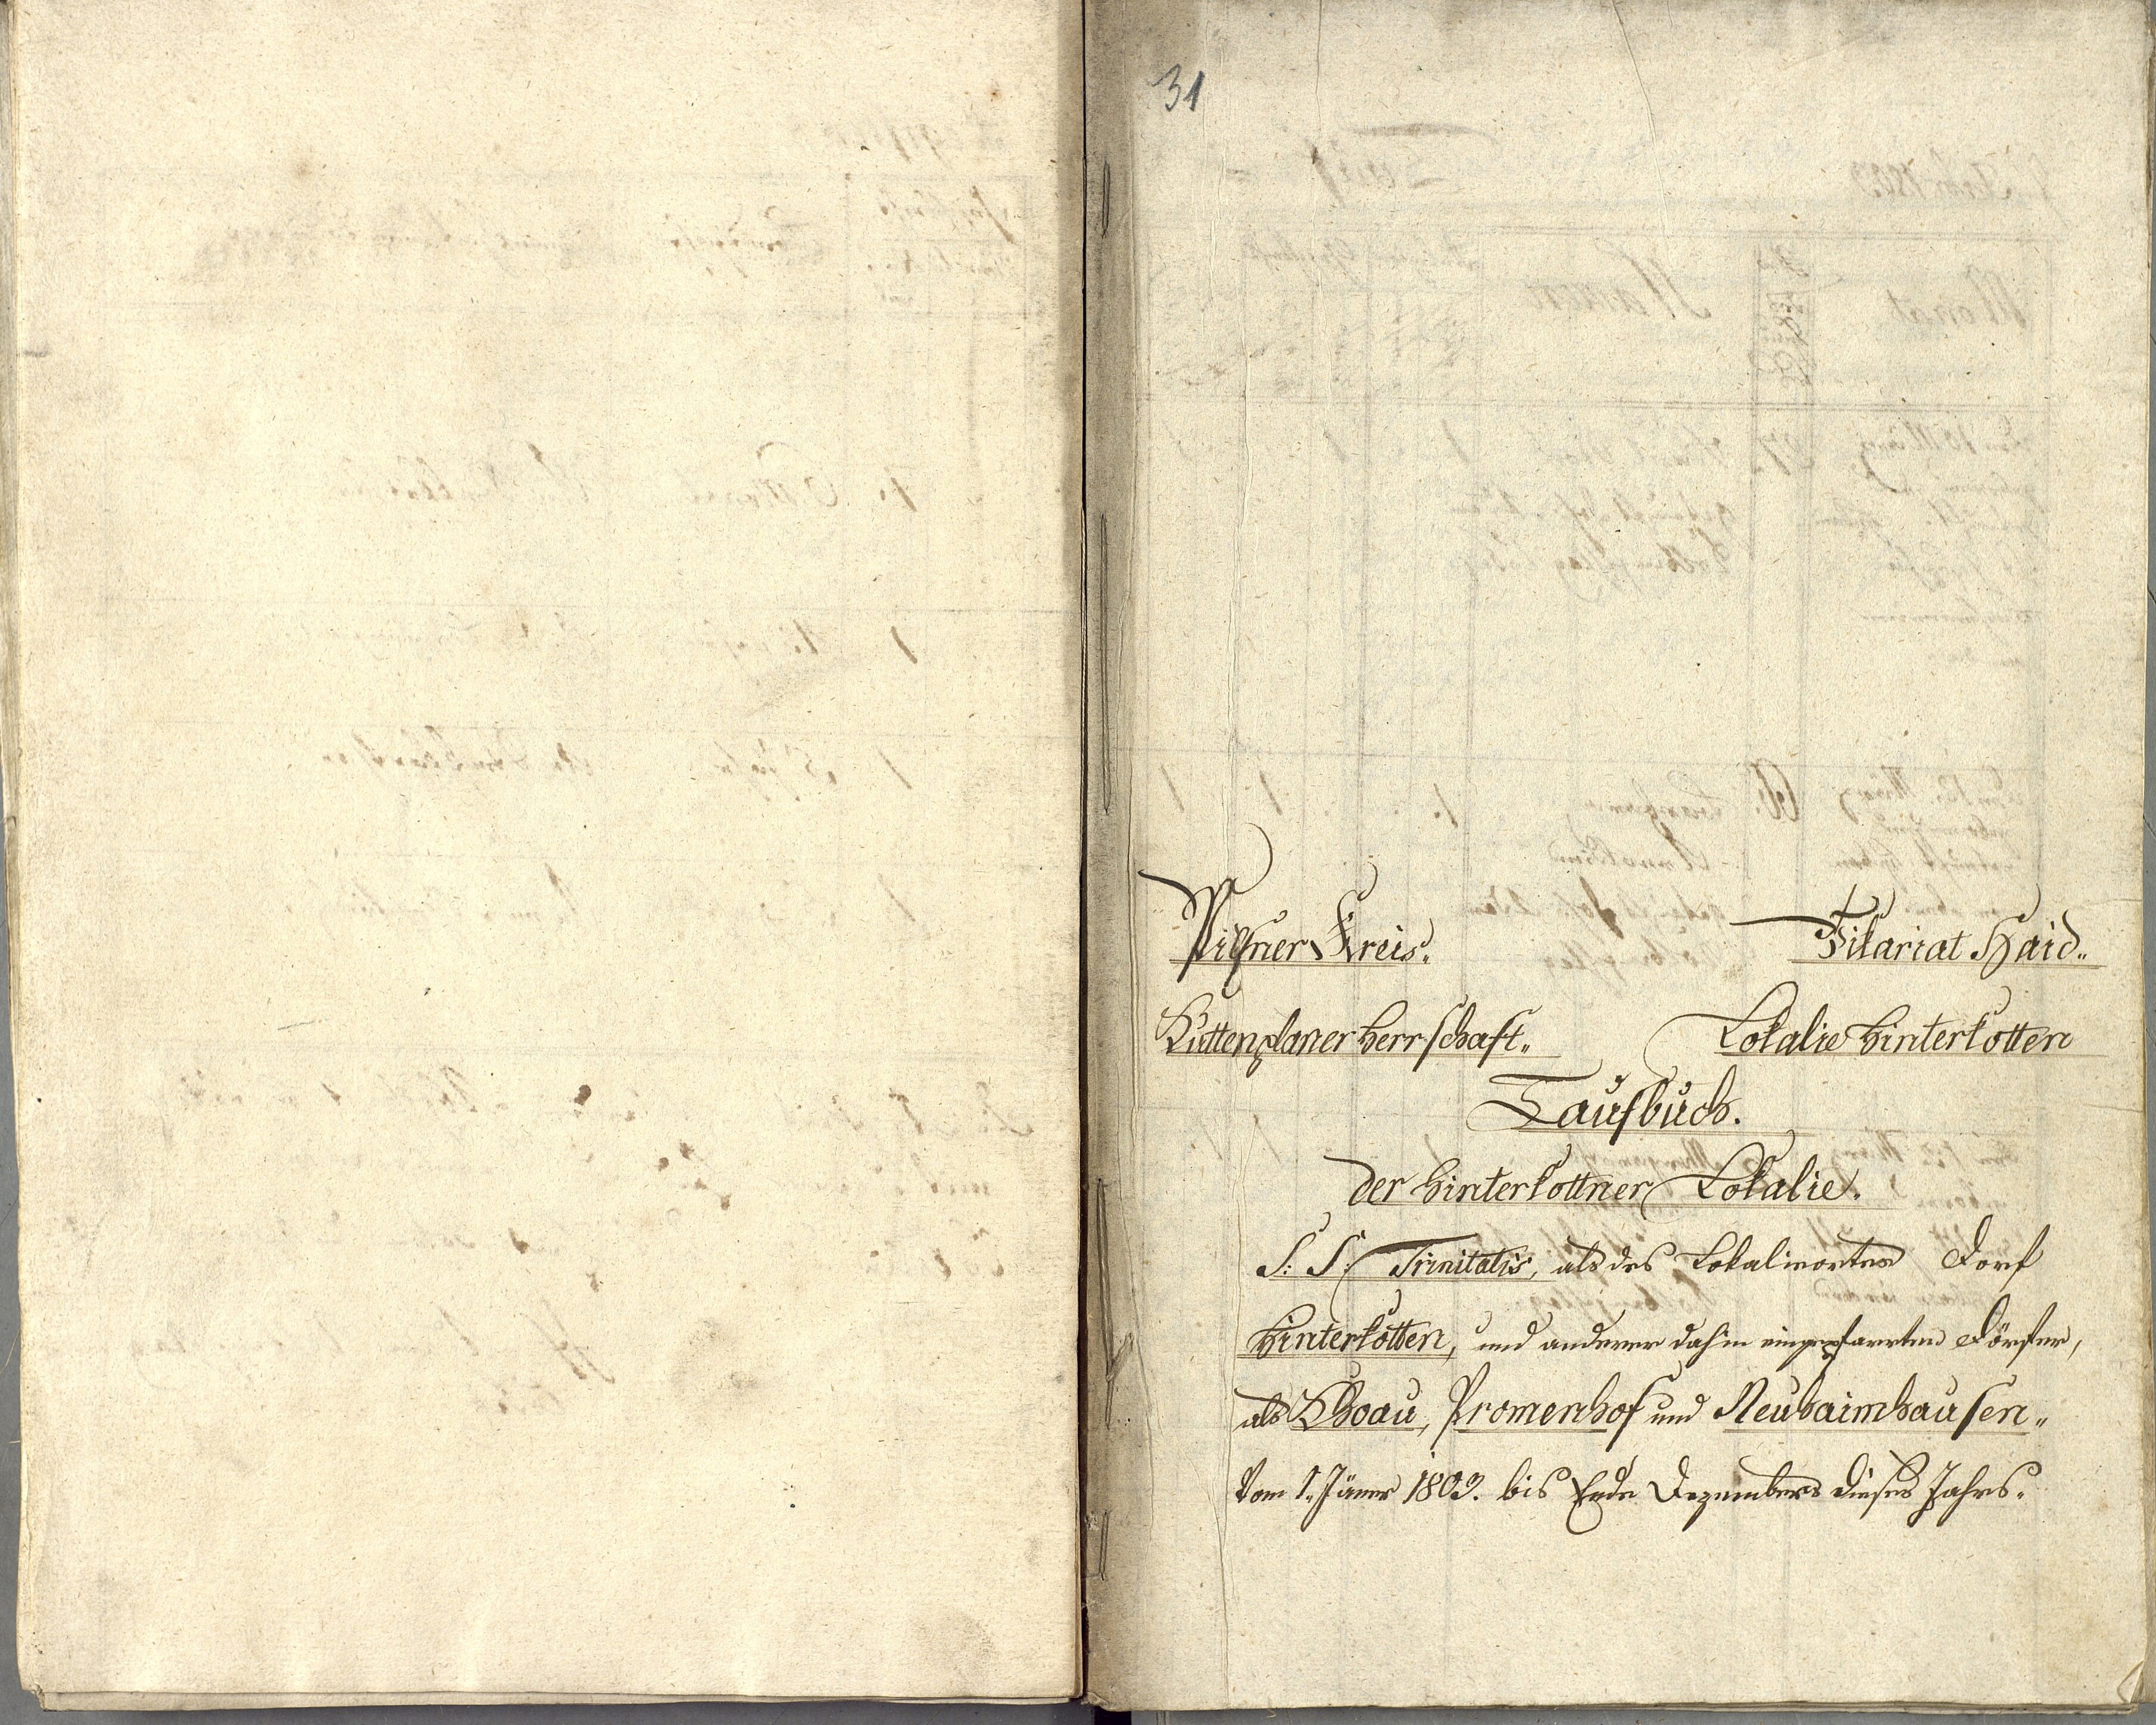 31
Pilsner Kreis.
Vikariat Haid.
Kuttenplaner Herrschaft.
Lokalie Hinterkotten
Taufbuch.
der Hinterkottner Lokalie.
S: S: Trinitatis, als des Lokalieortes Dorf
Hinterkotten, und anderer dahin eingepfarrten Dörfer,
als Khoau, Promenhof und Neuhaimhausen.
Vom 1. Jäner 1803. bis Ende Dezembers dieses Jahrs.